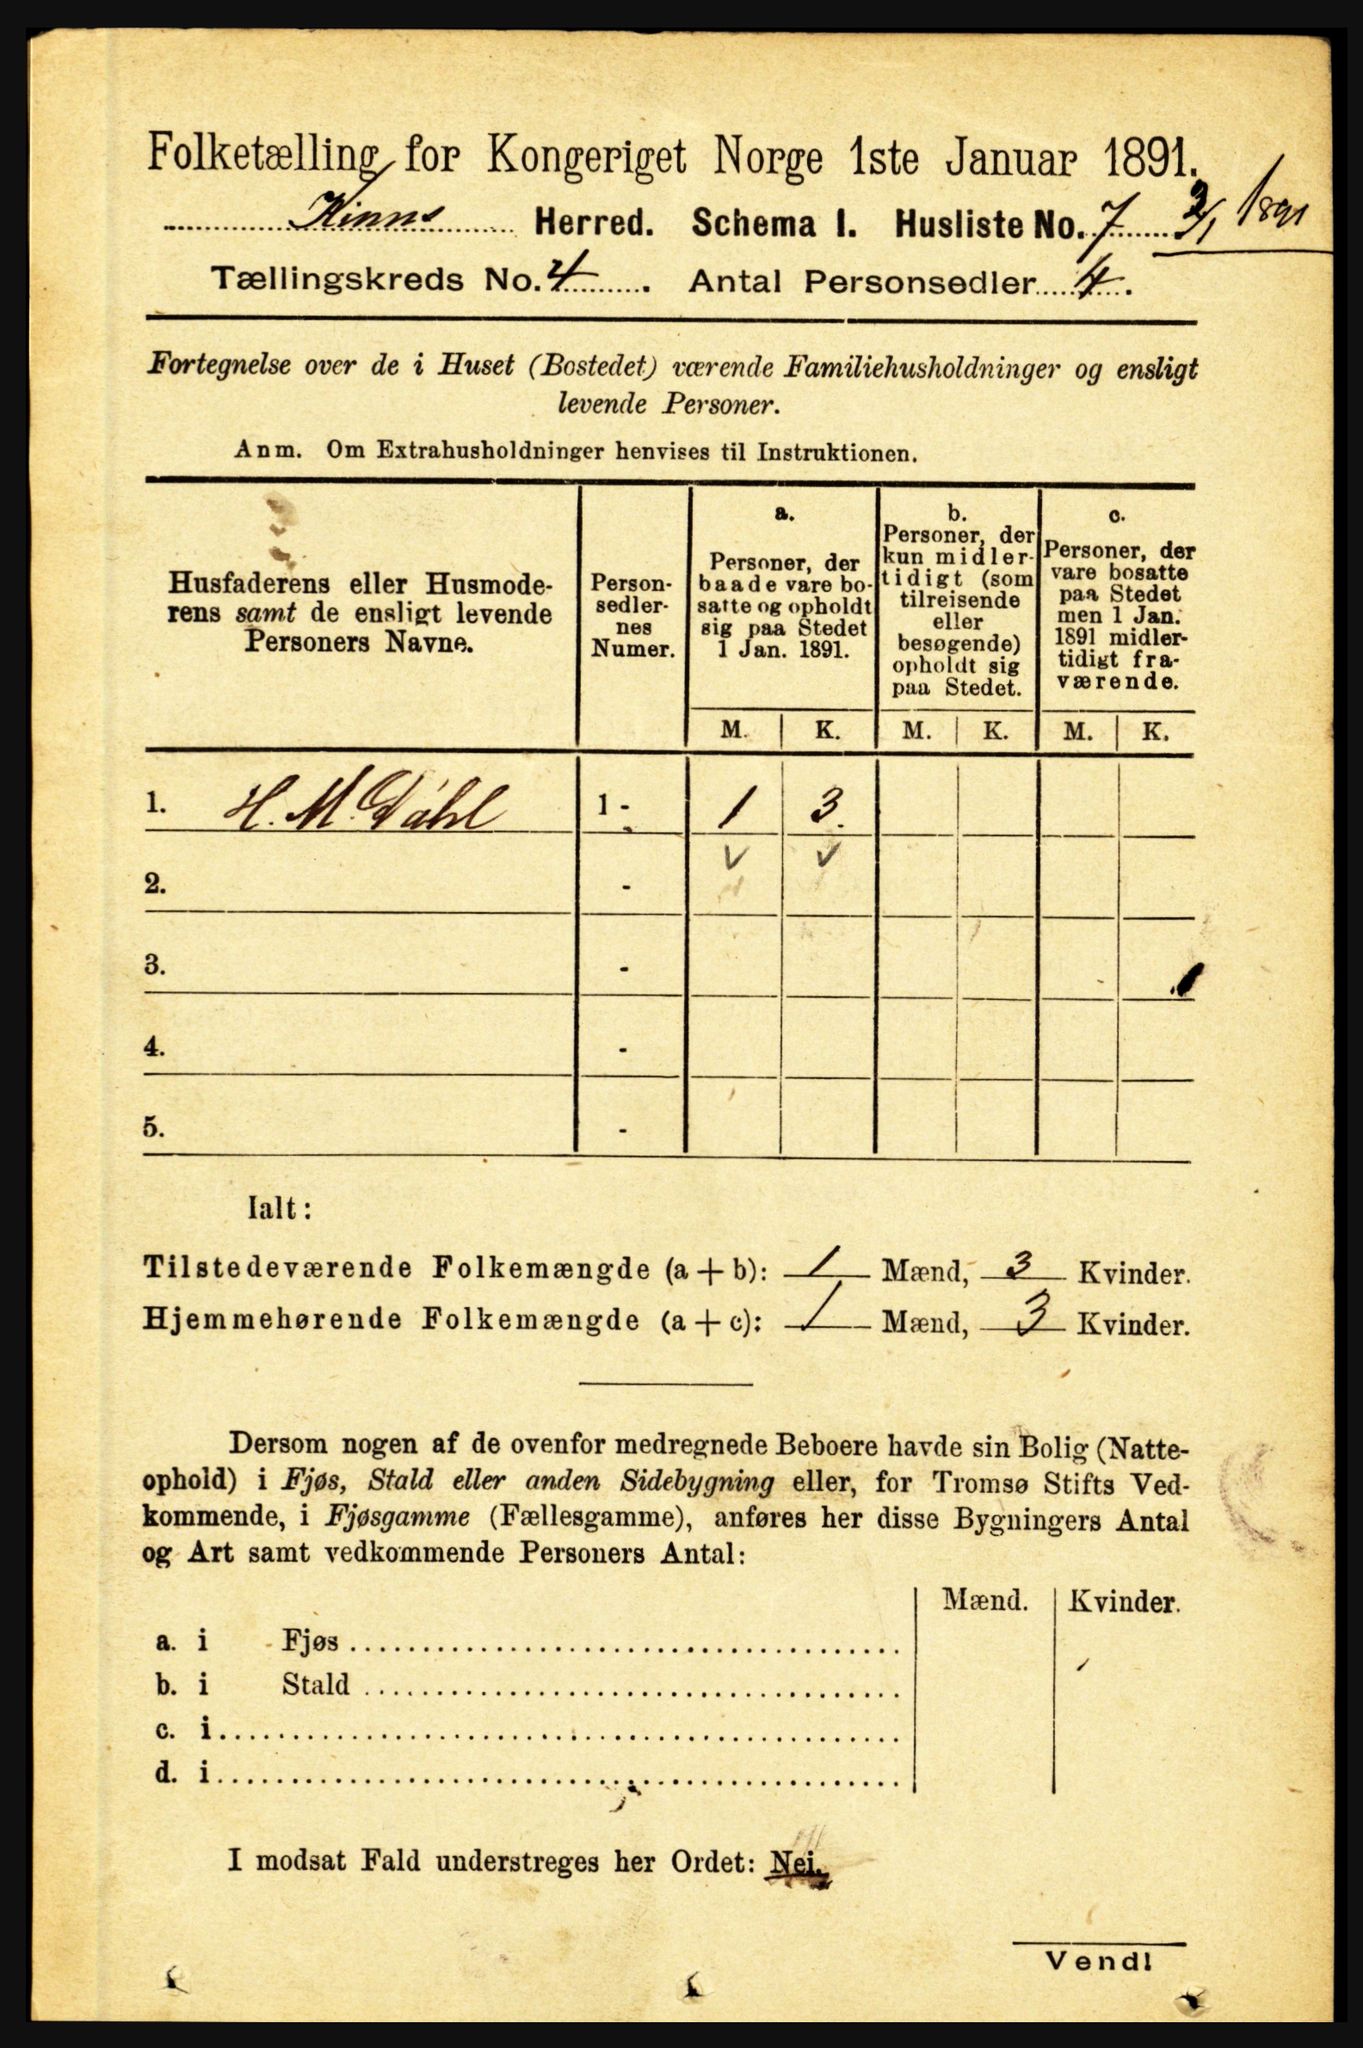 Folketælling for Kongeriget Norge 1ste Januar 1891.
Kinns Herred. Schema I. Husliste No. 7 2/1 1891
Tællingskreds No. 4. Antal Personsedler 4.
Fortegnelse over de i Huset (Bostedet) værende Familiehusholdninger og ensligt
levende Personer.
Anm. Om Extrahusholdninger henvises til Instruktionen.
Husfaderens eller Husmode-
rens samt de ensligt levende
Personers Navne.
Person-
sedler-
nes
Numer.
a.
Personer, der
baade vare bo-
satte og opholdt
sig paa Stedet
1 Jan. 1891.
b.
Personer, der
kun midler-
tidigt (som
tilreisende
eller
besøgende)
opholdt sig
paa Stedet.
c.
Personer, der
vare bosatte
paa Stedet
men 1 Jan.
1891 midler-
tidigt fra-
værende.
M. K. M. K. M. K.
1. H. M. Dahl 1 - 1 3.
2. -
3. -
4. -
5. -
Ialt:
Tilstedeværende Folkemængde (a + b): 1 Mænd, 3 Kvinder.
Hjemmehørende Folkemængde (a + c): 1 Mænd, 3 Kvinder.
Dersom nogen af de ovenfor medregnede Beboere havde sin Bolig (Natte-
ophold) i Fjøs, Stald eller anden Sidebygning eller, for Tromsø Stifts Ved-
kommende, i Fjøsgamme (Fællesgamme), anføres her disse Bygningers Antal
og Art samt vedkommende Personers Antal:
Mænd. Kvinder.
a. i Fjøs
b. i Stald
c. i
d. i
I modsat Fald understreges her Ordet: Nei.
Vend!